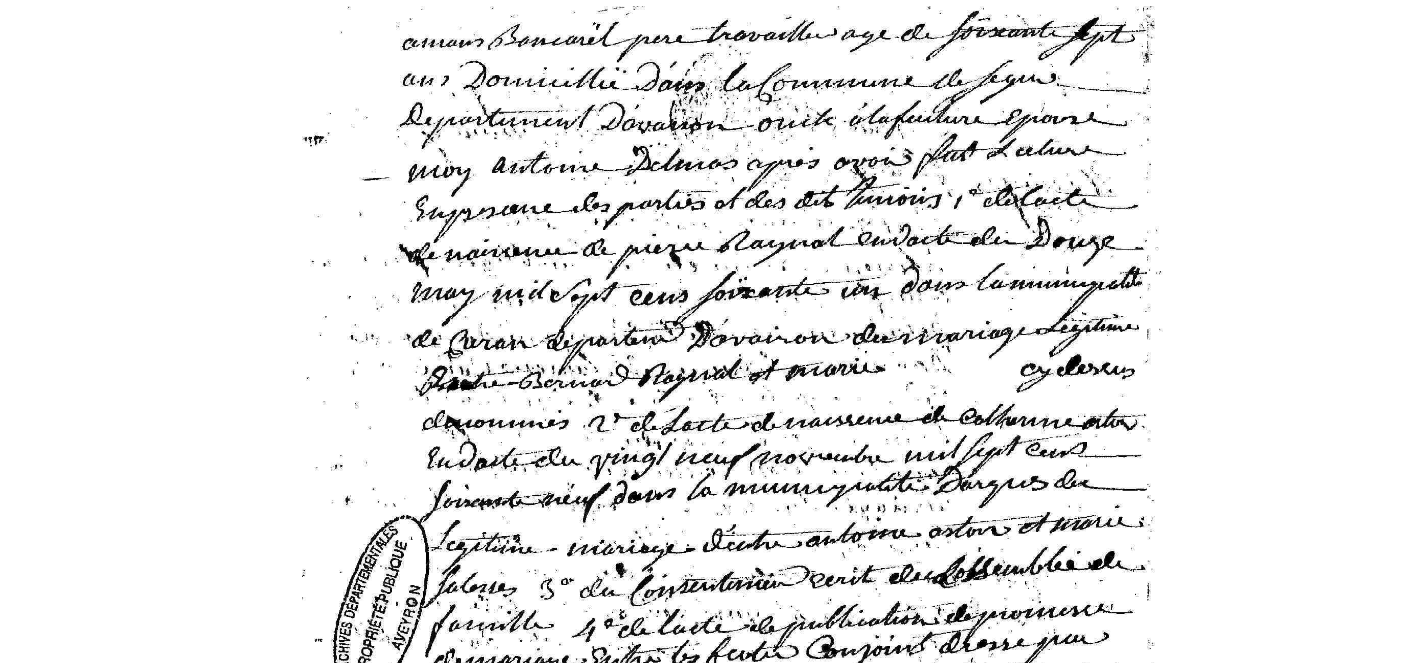 amans Bancarel pere travailleur age de soixante sept
ans Domicillié Dans la Commune de segur
Departement Davairon oncle a la feuture epouse
moy antoine Delmas apres avoir fait Lecture
En presene des parties et des dits temoins 1° de lacte
de naissence de pierre Raynal en datte du Douze
may mil sept cens soixante un dans la municipalité
de departem Davairon du mariage Legitime
Entre Bernard Raynal et marie cy dessus
denommés 2° de Lacte de naissence de catherine astor
En datte du vingt neuf novembre mil sept cens
soixante neuf dans la municipalité Darques du
Legitime mariage dentre antoine astor et marie
salesses 3° du Consentement ecrit de Lassemblée de
famille 4° de lacte de publication de promesse
de mariage Entre les feuturs Conjoint dresse par
ARCHIVES DÉPARTEMENTALES
PROPRIÉTÉ PUBLIQUE
AVEYRON